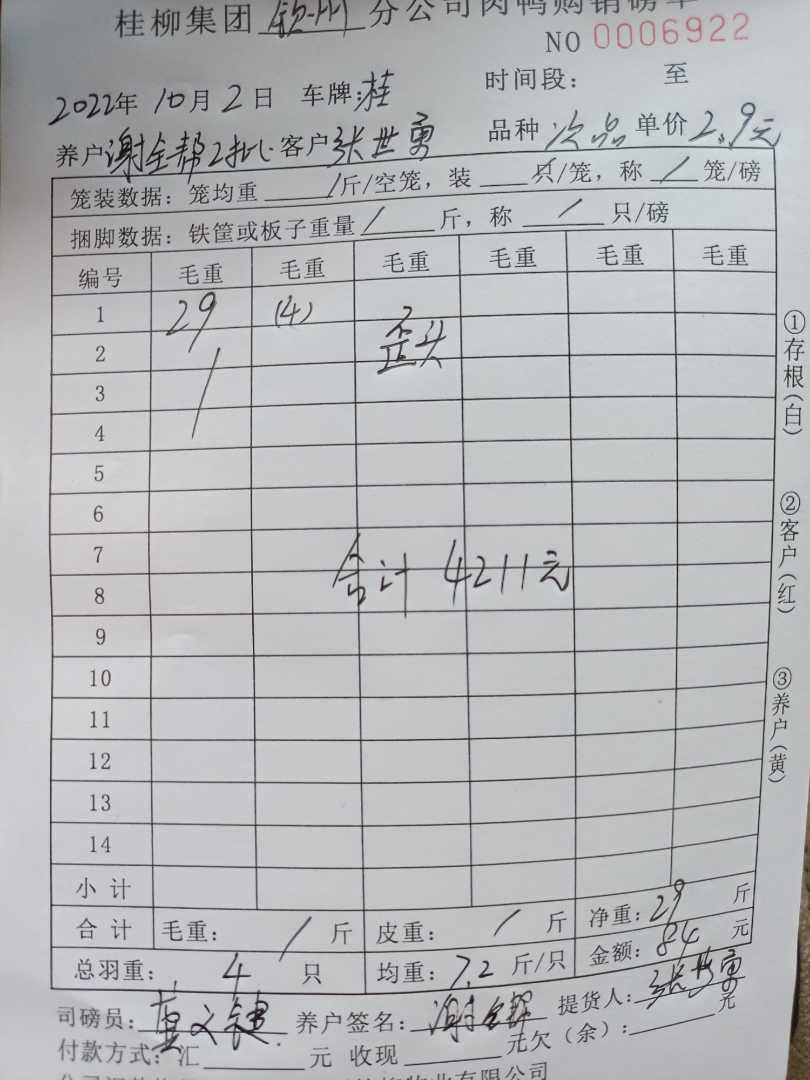 桂柳集团 钦州 分公司肉鸭购销磅单
NO 0006922
2022年 10月 2日 车牌:桂 时间段: 至
养户 谢全帮2批 客户 张世勇 品种 次品 单价 2.9元
笼装数据: 笼均重 / 斤/空笼, 装 / 只/笼, 称 / 笼/磅
捆脚数据: 铁筐或板子重量 / 斤, 称 / 只/磅
编号 毛重 毛重 毛重 毛重 毛重 毛重
1 29 (4)
2 歪头
3
4
5
6
7
合计 4211元
8
9
10
11
12
13
14
小 计
合 计 毛重: / 斤 皮重: / 斤 净重: 29 斤
总羽重: 4 只 均重: 7.2 斤/只 金额: 84 元
司磅员: 文健 养户签名: 谢全帮 提货人: 张世勇
付款方式: 汇 元 收现 元欠(余): 元
①存根(白)
②客户(红)
③养户(黄)